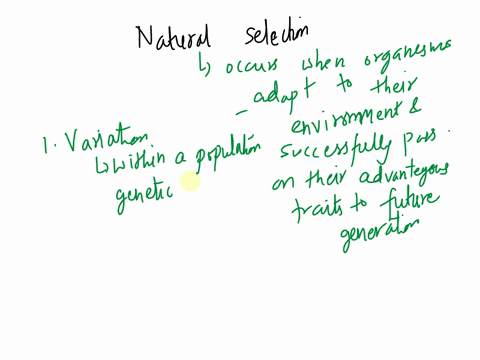 Natural selection
↳ occurs when organesms
- adapt to their
environment &
successfully pass
on their advantegeous
traits to future
generation
1. Variation
↳ within a population
genetic